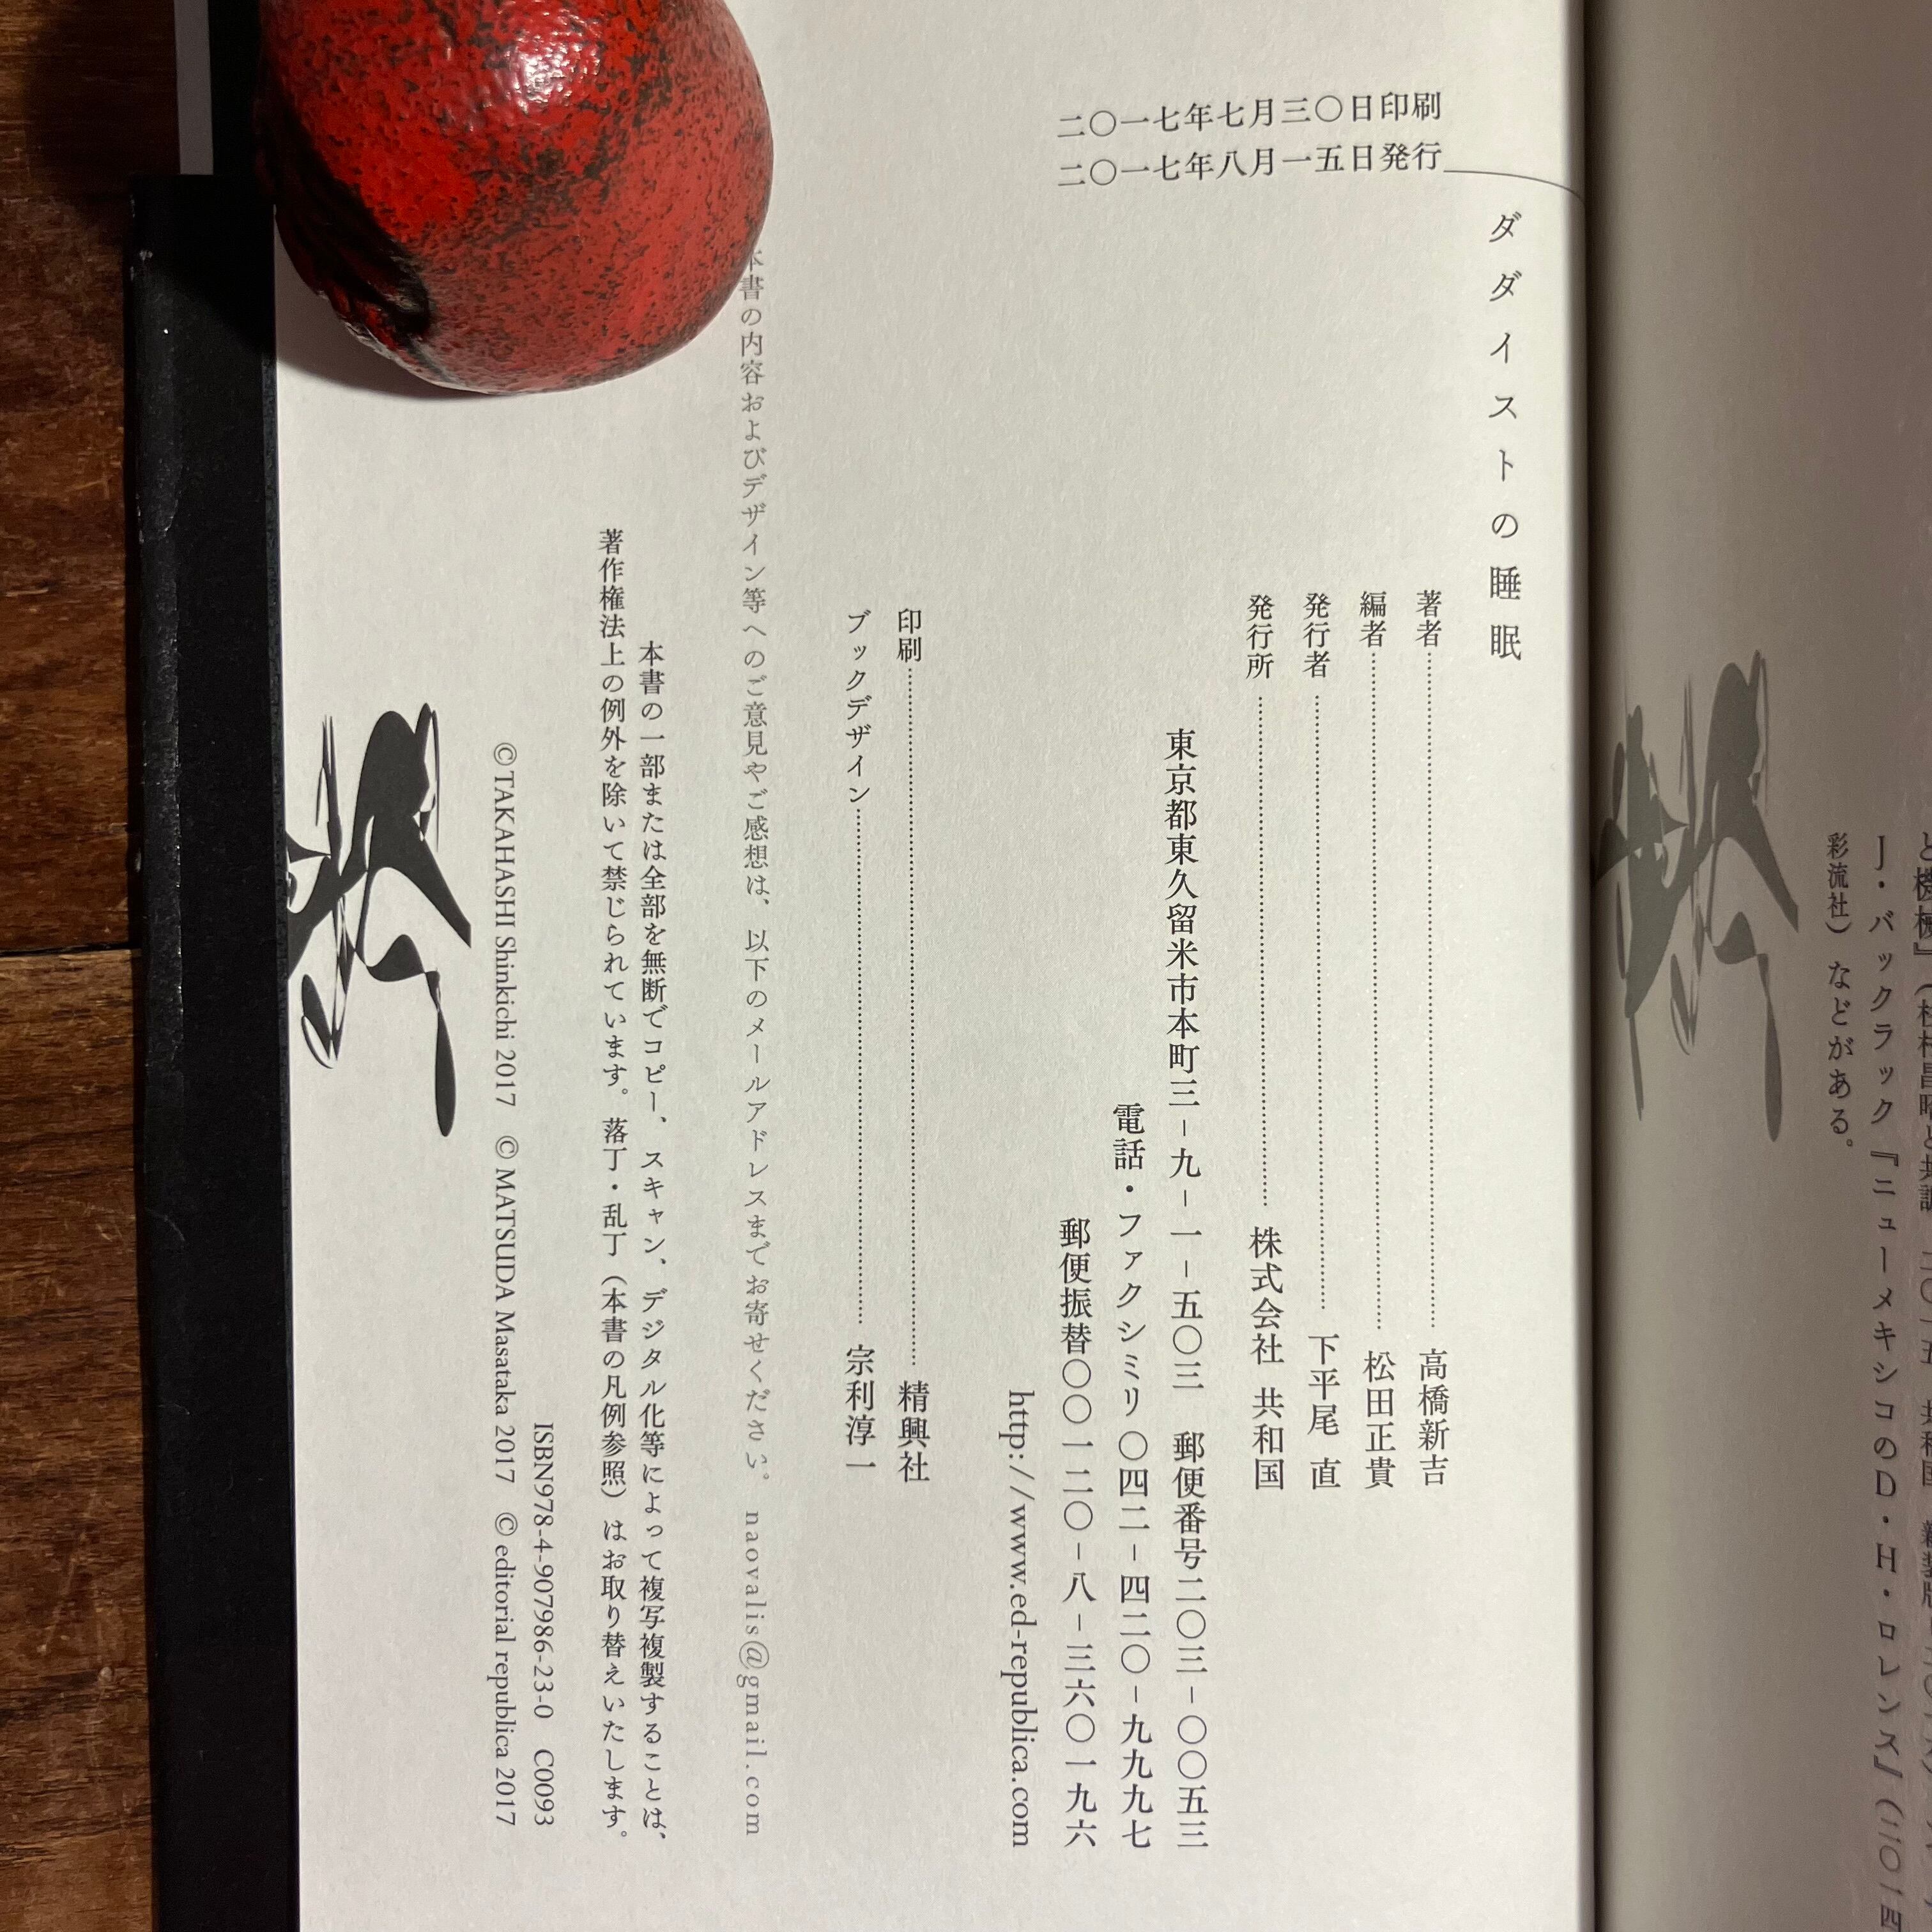 J・バックラック『ニューメキシコのD・H・ロレンス』(二〇一四
彩流社)などがある。
ダダイストの睡眠
二〇一七年七月三〇日印刷
二〇一七年八月一五日発行
著者 高橋新吉
編者 松田正貴
発行者 下平尾 直
発行所 株式会社 共和国
東京都東久留米市本町三-九-一-五〇三 郵便番号二〇三-〇〇五三
電話・ファクシミリ〇四二-四二〇-九九九七
郵便振替〇〇一二〇-八-三六〇一九六
http://www.ed-republica.com
印刷 精興社
ブックデザイン 宗利淳一
本書の内容およびデザイン等へのご意見やご感想は、以下のメールアドレスまでお寄せください。 naovalis@gmail.com
本書の一部または全部を無断でコピー、スキャン、デジタル化等によって複写複製することは、
著作権法上の例外を除いて禁じられています。落丁・乱丁(本書の凡例参照)はお取り替えいたします。
ISBN978-4-907986-23-0 C0093
©TAKAHASHI Shinkichi 2017 © MATSUDA Masataka 2017 © editorial republica 2017